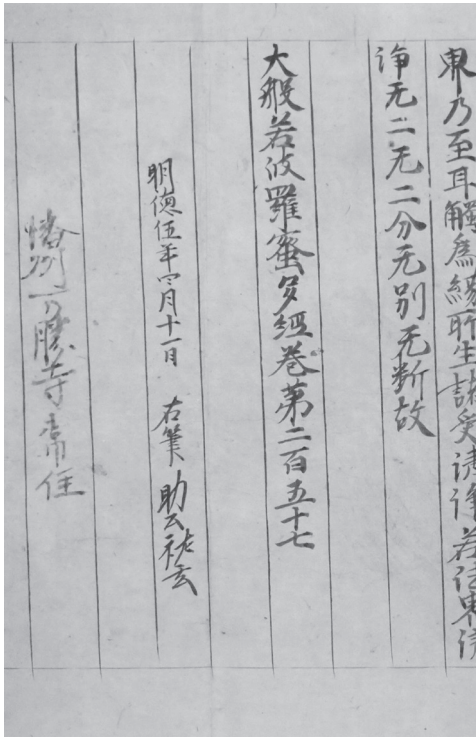 界乃至耳觸為縁所生諸受清淨若法界清
淨无二无二分无別无断故
大般若波羅蜜多経巻第二百五十七
明徳伍年六月十一日 右筆 助公祐玄
勝寺常住